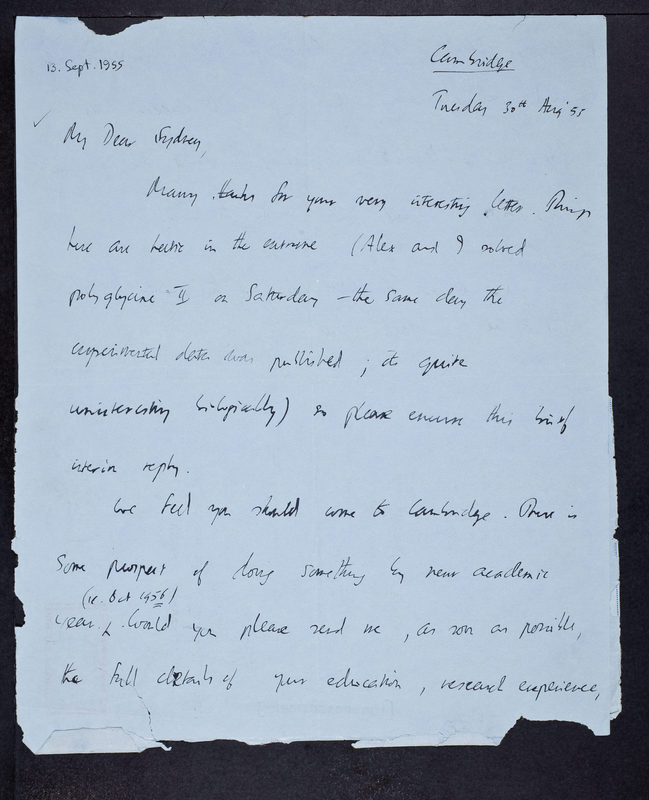 13. Sept. 1955
Cambridge
Tuesday 30th Aug 55
My Dear Sydney,
Many thanks for your very interesting letter. Things
here are hectic in the extreme (Alex and I solved
polyglycine II on Saturday – the same day the
experimental data was published; its quite
uninteresting biologically) so please excuse this brief
interim reply.
We feel you should come to Cambridge. There is
some prospect of doing something by next academic
(ie. Oct 1956)
year. Would you please send me, as soon as possible,
the full details of your education, research experience,